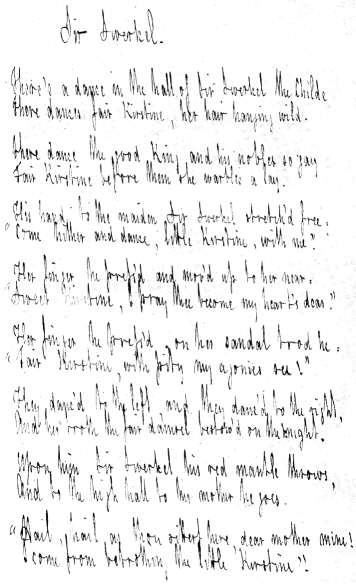 Sir Swerkel.
There's a dance in the hall of Sir Swerkel the Childe
There dances fair Kirstine, her hair hanging wild.
There dance the good King, and his nobles so gay
Fair Kirstine before them she warbles a lay.
His hand to the maiden Sir Swerkel stretch'd free:
"Come hither and dance, little Kirstine, with me!"
Her finger he press'd and mov'd up to her near:
"Sweet Kirstine, I pray thee become my heart's dear!"
Her finger he press'd, on her sandal trod he:
"Fair Kirstine, with pity my agonies see!"
They danc'd to the left and they danc'd to the right,
And her troth the fair damsel bestow'd on the knight.
Upon him Sir Swerkel his red mantle throws,
And to the high hall to his mother he goes.
"Hail, hail, as thou sittest here, dear mother mine!
I come from betrothing the little Kirstine".